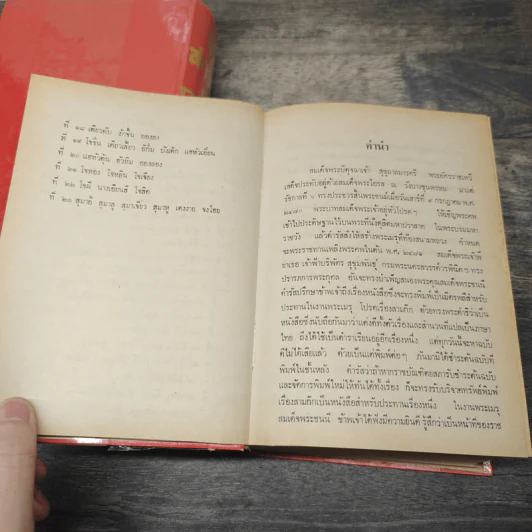 ที่ ๑๘ เตียวคับ งักจิ้น ออออง
ที่ ๑๙ โจจิ๋น เตียวเลี้ยว อิกิ๋ม บังเต๊ก แฮหัวเอี๋ยน
ที่ ๒๐ แฮหัวตุ้น ฮัวหิม อองลอง
ที่ ๒๑ โจหอง โจหยิน โจเจียง
ที่ ๒๒ โจผี นางเอียนสี โจสิด
ที่ ๒๓ สุมาอี้ สุมาสู สุมาเจียว สุมาหู เตงงาย จงโฮย
คำนำ
สมเด็จพระปิตุจฉาเจ้า สุขุมาลมารศรี พระอัครราชเทวี
เสด็จประทับอยู่ด้วยสมเด็จพระโอรส ณ วังบางขุนพรหม มาแต่
รัชกาลที่ ๖ ทรงประชวรสิ้นพระชนม์เมื่อวันเสาร์ที่ ๙ กรกฎาคม พ.ศ.
๒๔๗๐ พระบาทสมเด็จพระเจ้าอยู่หัวโปรดฯ ให้เชิญพระศพ
เข้าไปประดิษฐานไว้บนพระที่นั่งดุสิตมหาปราสาท ในพระบรมมหา
ราชวัง แล้วดำรัสสั่งให้สร้างพระเมรุที่ท้องสนามหลวง กำหนด
จะพระราชทานเพลิงพระศพในต้น พ.ศ. ๒๔๗๑ สมเด็จพระเจ้าพี่
ยาเธอ เจ้าฟ้าบริพัตร สุขุมพันธุ์ กรมพระนครสวรรค์วรพินิตฯ ทรง
ปรารภการพระกุศล อันจะทรงบำเพ็ญสนองพระคุณสมเด็จพระชนนี
ดำรัสปรึกษาข้าพเจ้าถึงเรื่องหนังสือซึ่งจะทรงพิมพ์เป็นมิตรพลีสำหรับ
ประทานในงานพระเมรุ โปรดเรื่องสามก๊ก ด้วยทรงพระดำริว่าเป็น
หนังสือซึ่งนับถือกันมาว่าแต่งดีทั้งตัวเรื่องและสำนวนที่แปลเป็นภาษา
ไทย ถึงได้ใช้เป็นตำราเรียนอยู่อีกเรื่องหนึ่ง แต่ทุกวันนี้จะหาฉบับ
ดีไม่ได้เสียแล้ว ด้วยเป็นแต่พิมพ์ต่อๆ กันมามิได้ชำระต้นฉบับที่
พิมพ์ในชั้นหลัง ดำรัสว่าถ้าหากราชบัณฑิตยสภารับชำระต้นฉบับ
และจัดการพิมพ์ใหม่ให้ทันได้ทั้งเรื่อง ก็จะทรงรับบริจาคทรัพย์พิมพ์
เรื่องสามก๊กเป็นหนังสือสำหรับประทานเรื่องหนึ่ง ในงานพระเมรุ
สมเด็จพระชนนี ข้าพเจ้าได้ฟังมีความยินดี รู้สึกว่าเป็นหน้าที่ของราช